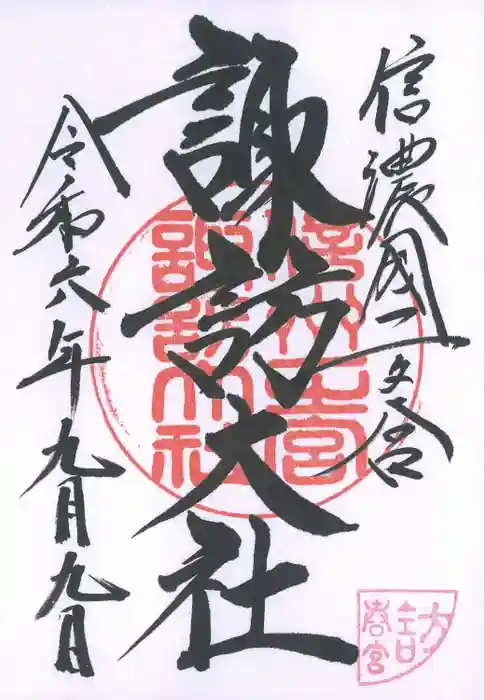 信濃國一之宮
諏訪大社
令和六年九月九日
諏訪大社
春宮